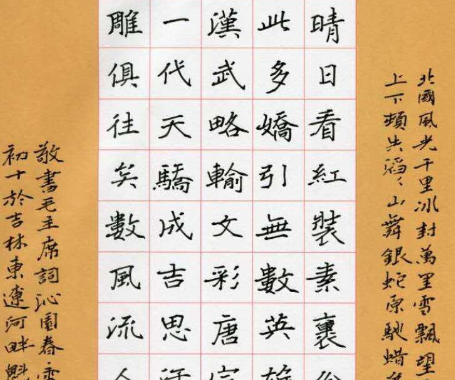 北國風光千里冰封萬里雪飄望
上下頓失滔〻山舞銀蛇原馳蜡
晴日看紅裝素裹
此多嬌引無數英雄
漢武略輸文彩唐宗
一代天驕成吉思汗
雕俱往矣數風流人
敬書毛主席詞沁園春雪
初十於吉林東遼河畔